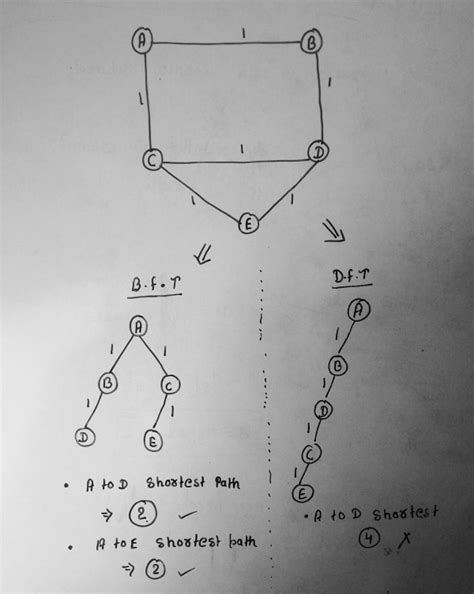 A 1 B
1 1
C 1 D
1 1
E
B.f.T
D.f.T
A
1 1
B C
1 1
D E
A
1
B
1
D
1
C
1
E
• A to D shortest Path
⇒ 2 ✓
• A to E shortest path
⇒ 2 ✓
• A to D shortest
4 ✗